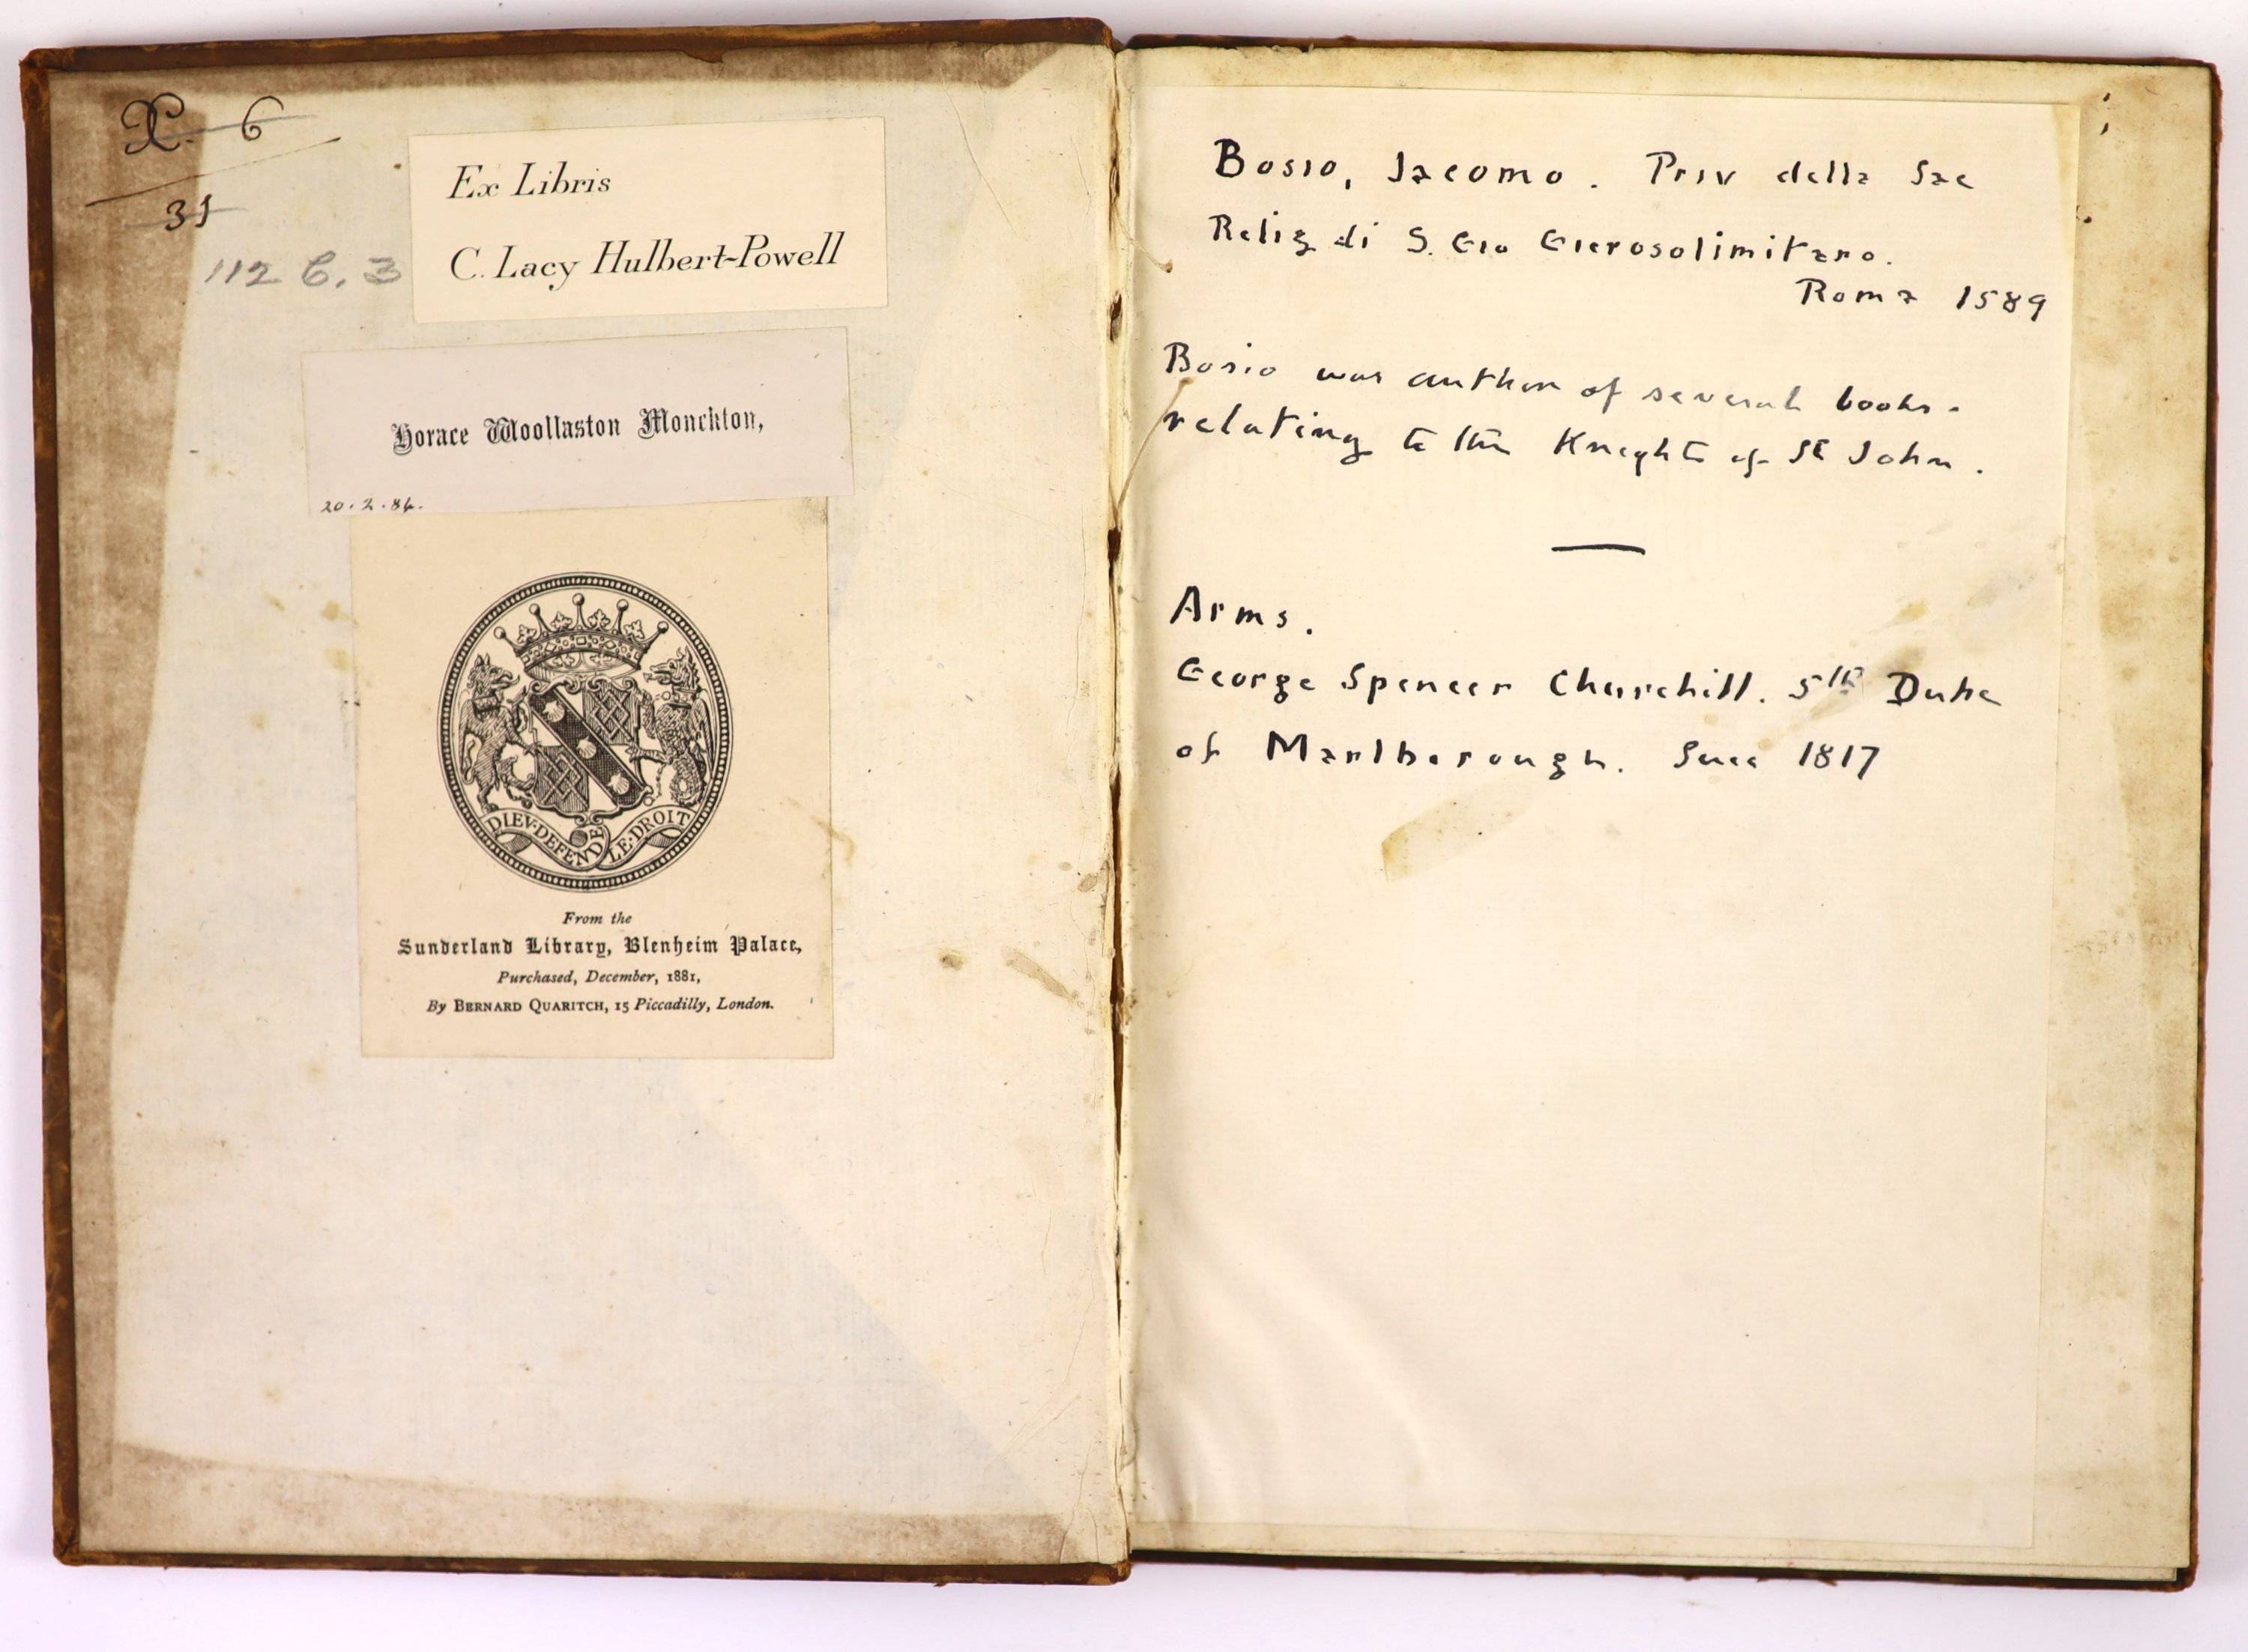 X. 6
31
112 C. 3
Ex Libris
C. Lacy Hulbert-Powell
Horace Woollaston Monckton,
20. 2. 84.
DIEV·DEFENDE LE·DROIT
From the
Sunderland Library, Blenheim Palace,
Purchased, December, 1881,
By BERNARD QUARITCH, 15 Piccadilly, London.
Bosio, Iacomo. Priv della Sac
Relig di S. Gio Gierosolimitano.
Roma 1589
Bosio was author of several books
relating to the Knights of St John.
Arms.
George Spencer Churchill. 5th Duke
of Marlborough. Succ 1817